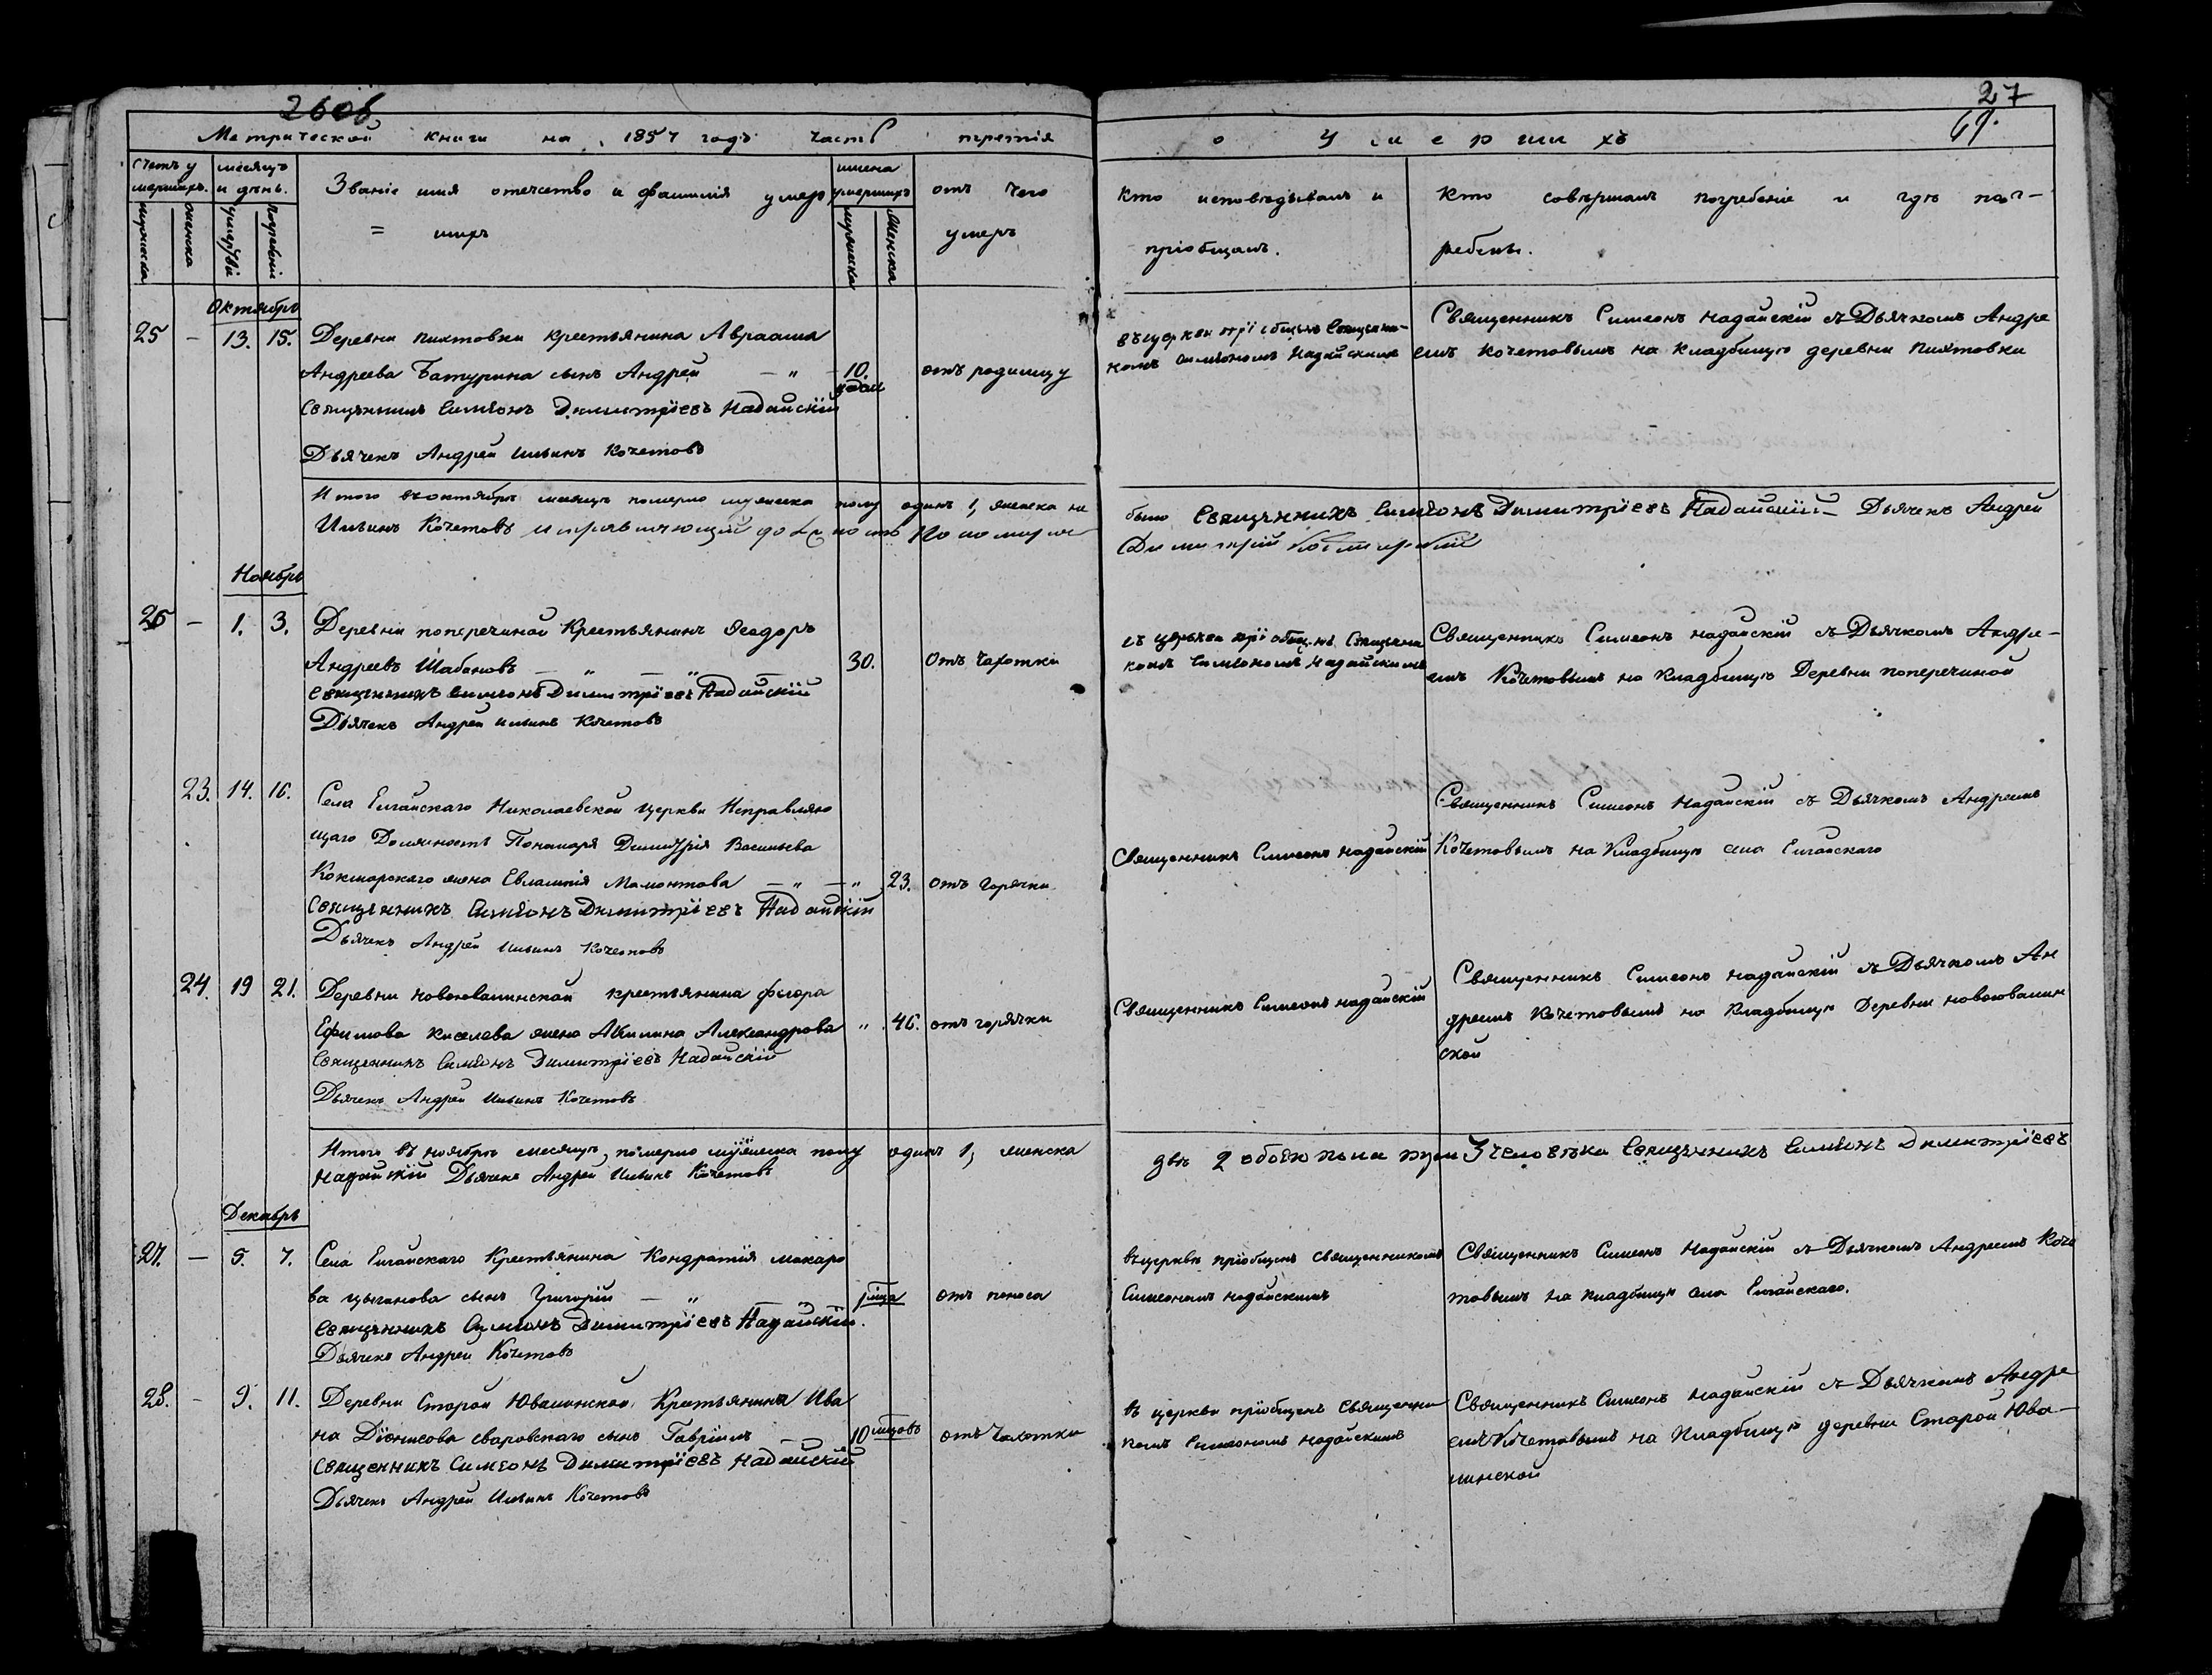 26об.
27
67.
Метрической книги на 1857 годъ часть третія
о умершихъ
Счетъ у
мершихъ.
мужеска
женска
месяцъ
и день.
умертвій
погребеній
Званіе имя отечество и фамилія умер
= шихъ
умершихъ
мужеска
женска
отъ чего
умеръ
Кто исповѣдывалъ и
пріобщалъ.
Кто совершалъ погребеніе и гдѣ пог-
ребены.
Октябрь
25 – 13. 15. Деревни Пихтовки крестьянина Авраама
Андреева Батурина сынъ Андрей – „ – 10. отъ родимцу
Священникъ Симеонъ Димитріевъ Надайскій
Дьячекъ Андрей Ильинъ Кочетовъ
въ церкви пріобщенъ Священни-
комъ Симеономъ Надайскимъ
Священникъ Симеонъ Надайскій съ Дьячкомъ Андре
емъ Кочетовымъ на кладбищу деревни Пихтовки
Итого въ октябрѣ месяцѣ померло мужеска полу одинъ 1, женска не
было Священникъ Симеонъ Димитріевъ Надайскій Дьячекъ Андрей
Ильинъ Кочетовъ исправляющій должность Пономаря
Димитрій Кокшарскій
Ноябрь
26 – 1. 3. Деревни поперечиной Крестьянинъ Ѳеодоръ
Андреевъ Шабановъ – „ – „ – 30. Отъ чахотки
Священникъ Симеонъ Димитріевъ Надайскій
Дьячекъ Андрей Ильинъ Кочетовъ
въ церкви пріобщенъ Священни
комъ Симеономъ Надайскимъ
Священникъ Симеонъ Надайскій съ Дьячкомъ Андре-
емъ Кочетовымъ на Кладбищу Деревни поперечиной
23. 14. 16. Села Елгайскаго Николаевской Церкви Исправляю
щаго Должность Пономаря Димитрія Васильева
Кокшарскаго жена Евлампія Мамонтова – „ – „ 23. отъ горячки
Священникъ Симеонъ Димитріевъ Надайскій
Дьячекъ Андрей Ильинъ Кочетовъ
Священникъ Симеонъ Надайскій
Священникъ Симеонъ Надайскій съ Дьячкомъ Андреемъ
Кочетовымъ на Кладбищу села Елгайскаго
24. 19 21. Деревни Новоювалинской крестьянина Фегора
Ефимова Киселева жена Акилина Александрова „ 46. отъ горячки
Священникъ Симеонъ Димитріевъ Надайскій
Дьячекъ Андрей Ильинъ Кочетовъ
Священникъ Симеонъ Надайскій
Священникъ Симеонъ Надайскій съ Дьячкомъ Ан
дреемъ Кочетовымъ на кладбищу Деревни Новоювалин
ской
Итого въ ноябрѣ месяцѣ, померло мужеска полу одинъ 1, женска
двѣ 2 обоего пола три 3 человѣка Священникъ Симеонъ Димитріевъ
Надайскій Дьячекъ Андрей Ильинъ Кочетовъ
Декабрь
27. – 5. 7. Села Елгайскаго Крестьянина Кондратія Макаро
ва Цыганова сынъ Григорій – „ 1 мца отъ поноса
Священникъ Симеонъ Димитріевъ Надайскій.
Дьячекъ Андрей Кочетовъ
въ церкви пріобщенъ священникомъ
Симеономъ Надайскимъ
Священникъ Симеонъ Надайскій съ Дьячкомъ Андреемъ Коче
товымъ на кладбищу села Елгайскаго.
28. – 9. 11. Деревни Старой Ювалинской Крестьянина Ива
на Діонисова сваровскаго сынъ Гавріилъ – 10 мцовъ отъ чахотки
Священникъ Симеонъ Димитріевъ Надайскій
Дьячекъ Андрей Ильинъ Кочетовъ
въ церкви пріобщенъ священни
комъ Симеономъ Надайскимъ
Священникъ Симеонъ Надайскій съ Дьячкомъ Андре
емъ Кочетовымъ на Кладбищу деревни Старой Юва-
линской